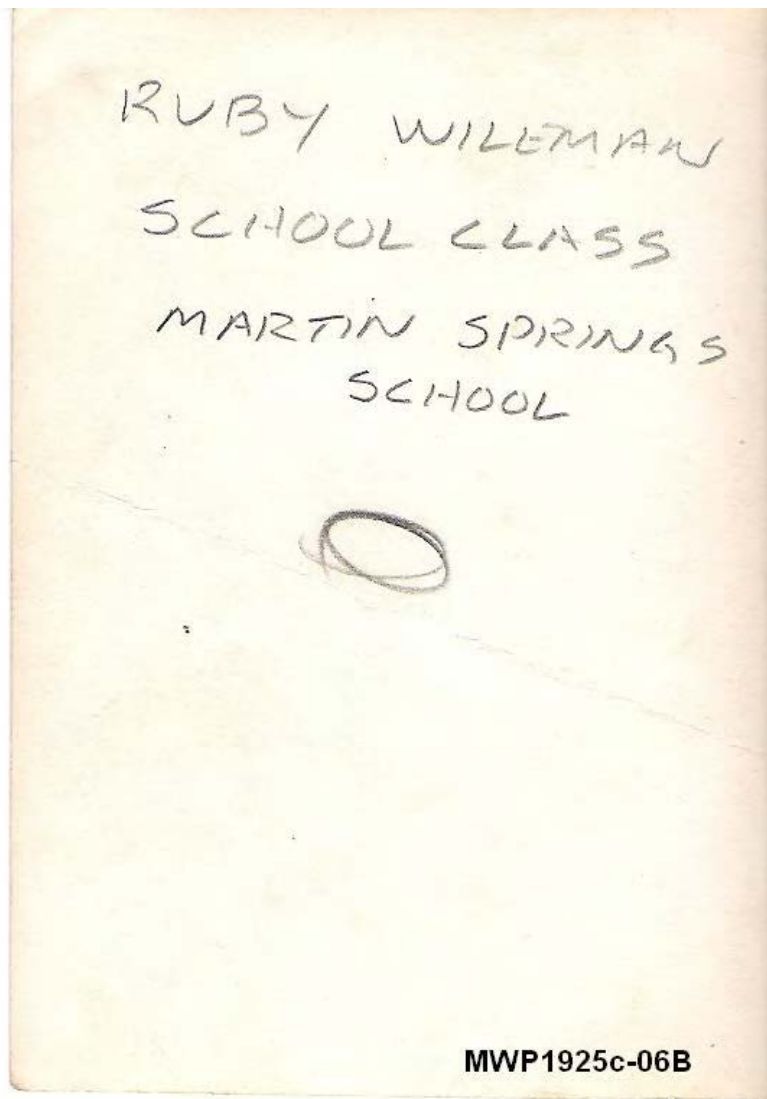 RUBY WILEMAN
SCHOOL CLASS
MARTIN SPRINGS
SCHOOL
MWP1925c-06B